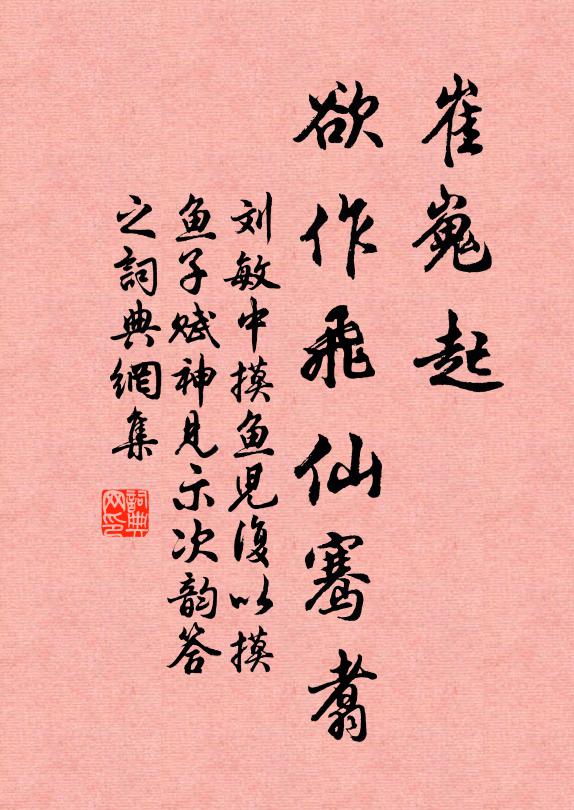 崔嵬起
欲作飛仙騫翥
刘敏中摸鱼児復以摸
鱼子赋神見示次韵答
之詞典網集
詞典网印